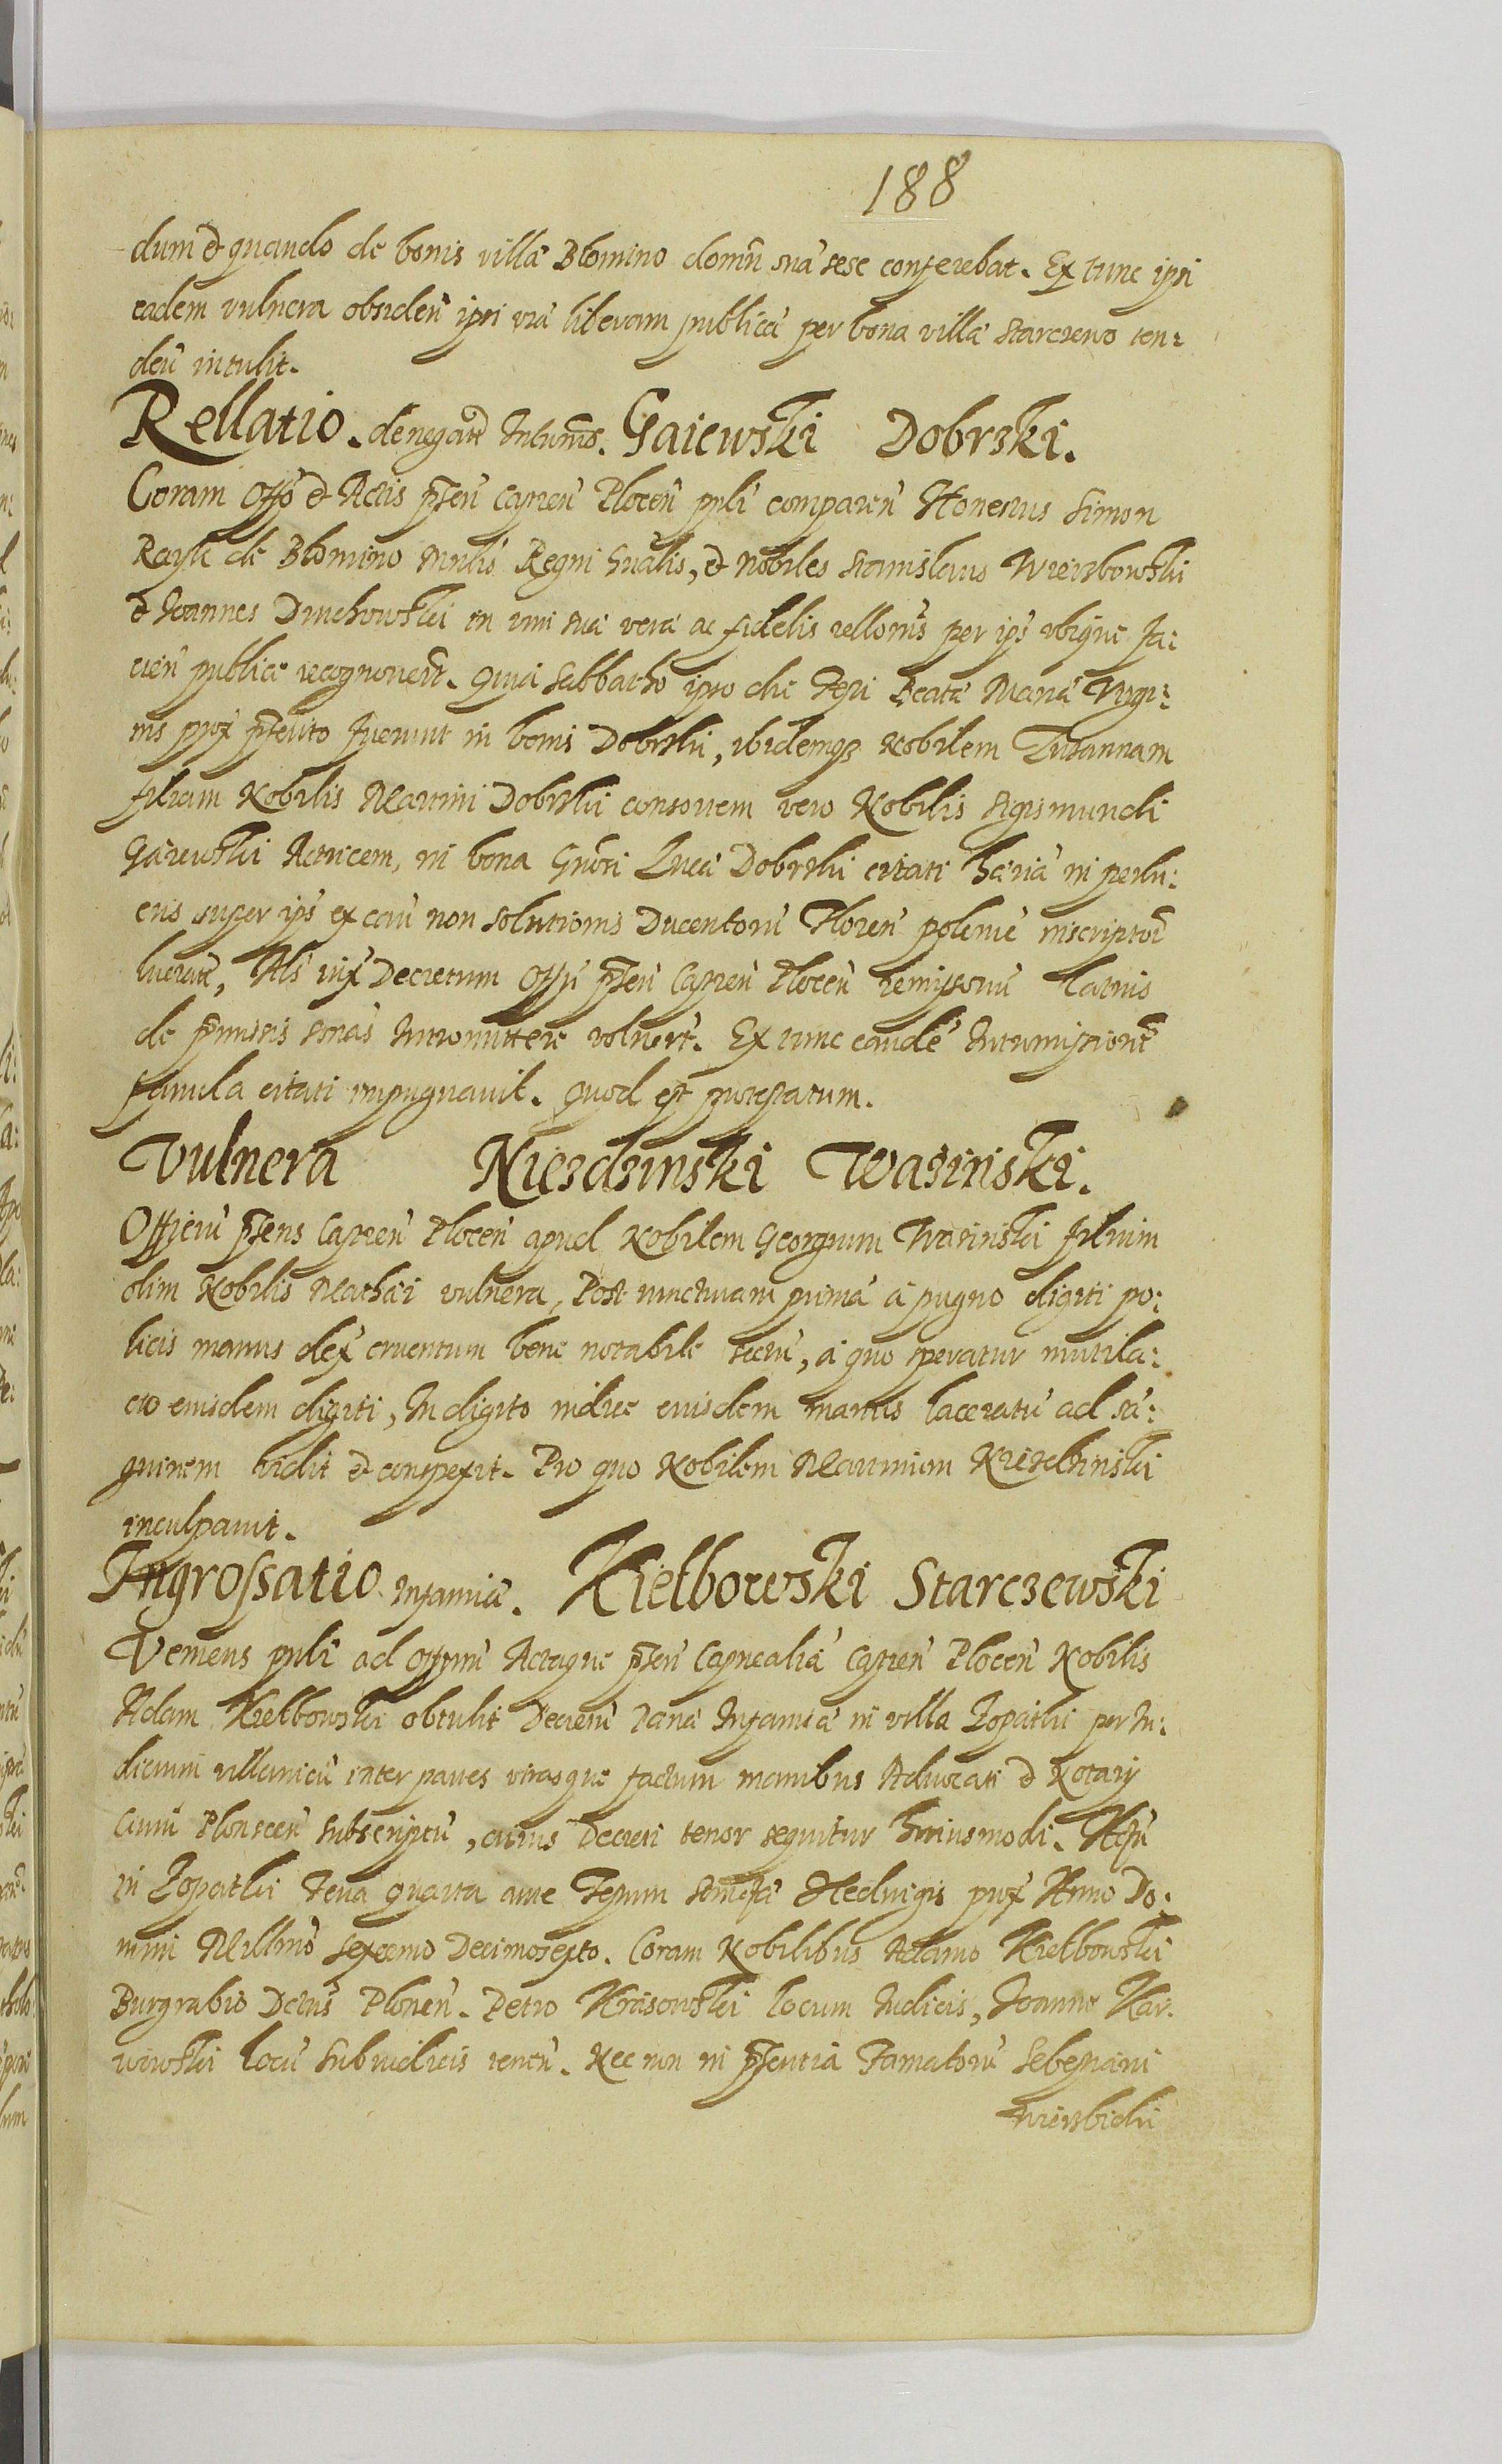 188
dum et quando de bonis villa Blomino domũ suã sese conferebat. Ex tunc ipsi
eadem vulnera obsideñ ipsi viã liberam publicã per bona villã Starczewo ten:
deñ intulit.
Rellatio. denegatae Intromis. Gaiewski Dobrski.
Coram Offo et Actis pñteñ Capteñ Ploceñ psli compareñ Honestus Simon
Rayk de Blomino Mnlis Regni Gnalis, et Nobiles Stanislaus Wierzbowski
et Joannes Duchowski in vim suã verã ac fidelis rellonis per ips ubique fa:
cieñ publice recognoverũt. Quia Sabbatho ipso die Festi Beatã Mariã Virgi:
nis prox pñterito fuerunt in bonis Dobrski, ibidemq3 Nobilem Zuzannam
filiam Nobilis Martini Dobrski consortem vero Nobilis Sigismundi
Gaiewski Actricem, in bona Gnõsi Lucã Dobrski citati hãriã in perlu:
cris super ips ex cau non solutionis Ducentorũ Floreñ poleniẽ inscriptor
luerare, Als iux Decretum Offi pñteñ Capteñ Ploceñ remissoriũ latius
de pmissis sonãs Intromittere voluerũt. Ex tunc eandẽ Intromissionẽ
famula citati impugnavit. Quod est protestatum.
Vulnera Niezdzinski Wasinski.
Officiũ pñtens Capteñ Ploceñ apud Nobilem Georgium Wasinski filium
olim Nobilis Mathãi vulnera, Post iuncturam primã a pugno digiti po:
licis manus dex cruentum bene notabile sectũ, a quo speratur mutila:
cio eiusdem digiti, In digito indice eiusdem manus laceratũ ad sã:
guinem vidit et conspexit. Pro quo Nobilem Martinum Niezdzinski
inculpavit.
Ingrossatio Infamiã. Kiełbowski Starczewski
Veniens psli ad Offium Actaque pñteñ Captnealiã Capteñ Ploceñ Nobilis
Adam Kiełbowski obtulit Decretũ Panã Infamiã in villa Łopatki per Iu:
dicium villanicũ inter partes utrasque factum manibus Advocati et Notarij
Civiũ Plonsceñ Subscriptũ, cuius Decreti tenor sequitur huiusmodi. Actũ
in Łopatki Feria quarta ante Festum Sanctã Hedvigis prox Anno Do:
mini Millmõ Sexcemo Decimosexto. Coram Nobilibus Adamo Kiełbowski
Burgrabio Dctus Ploneñ. Petro Krasowski locum Iudicis, Joanne Kar:
wowski locũ Subiudicis teneñ. Nec non in pñsentia Famatorũ Sebestiani
Wierzbicki